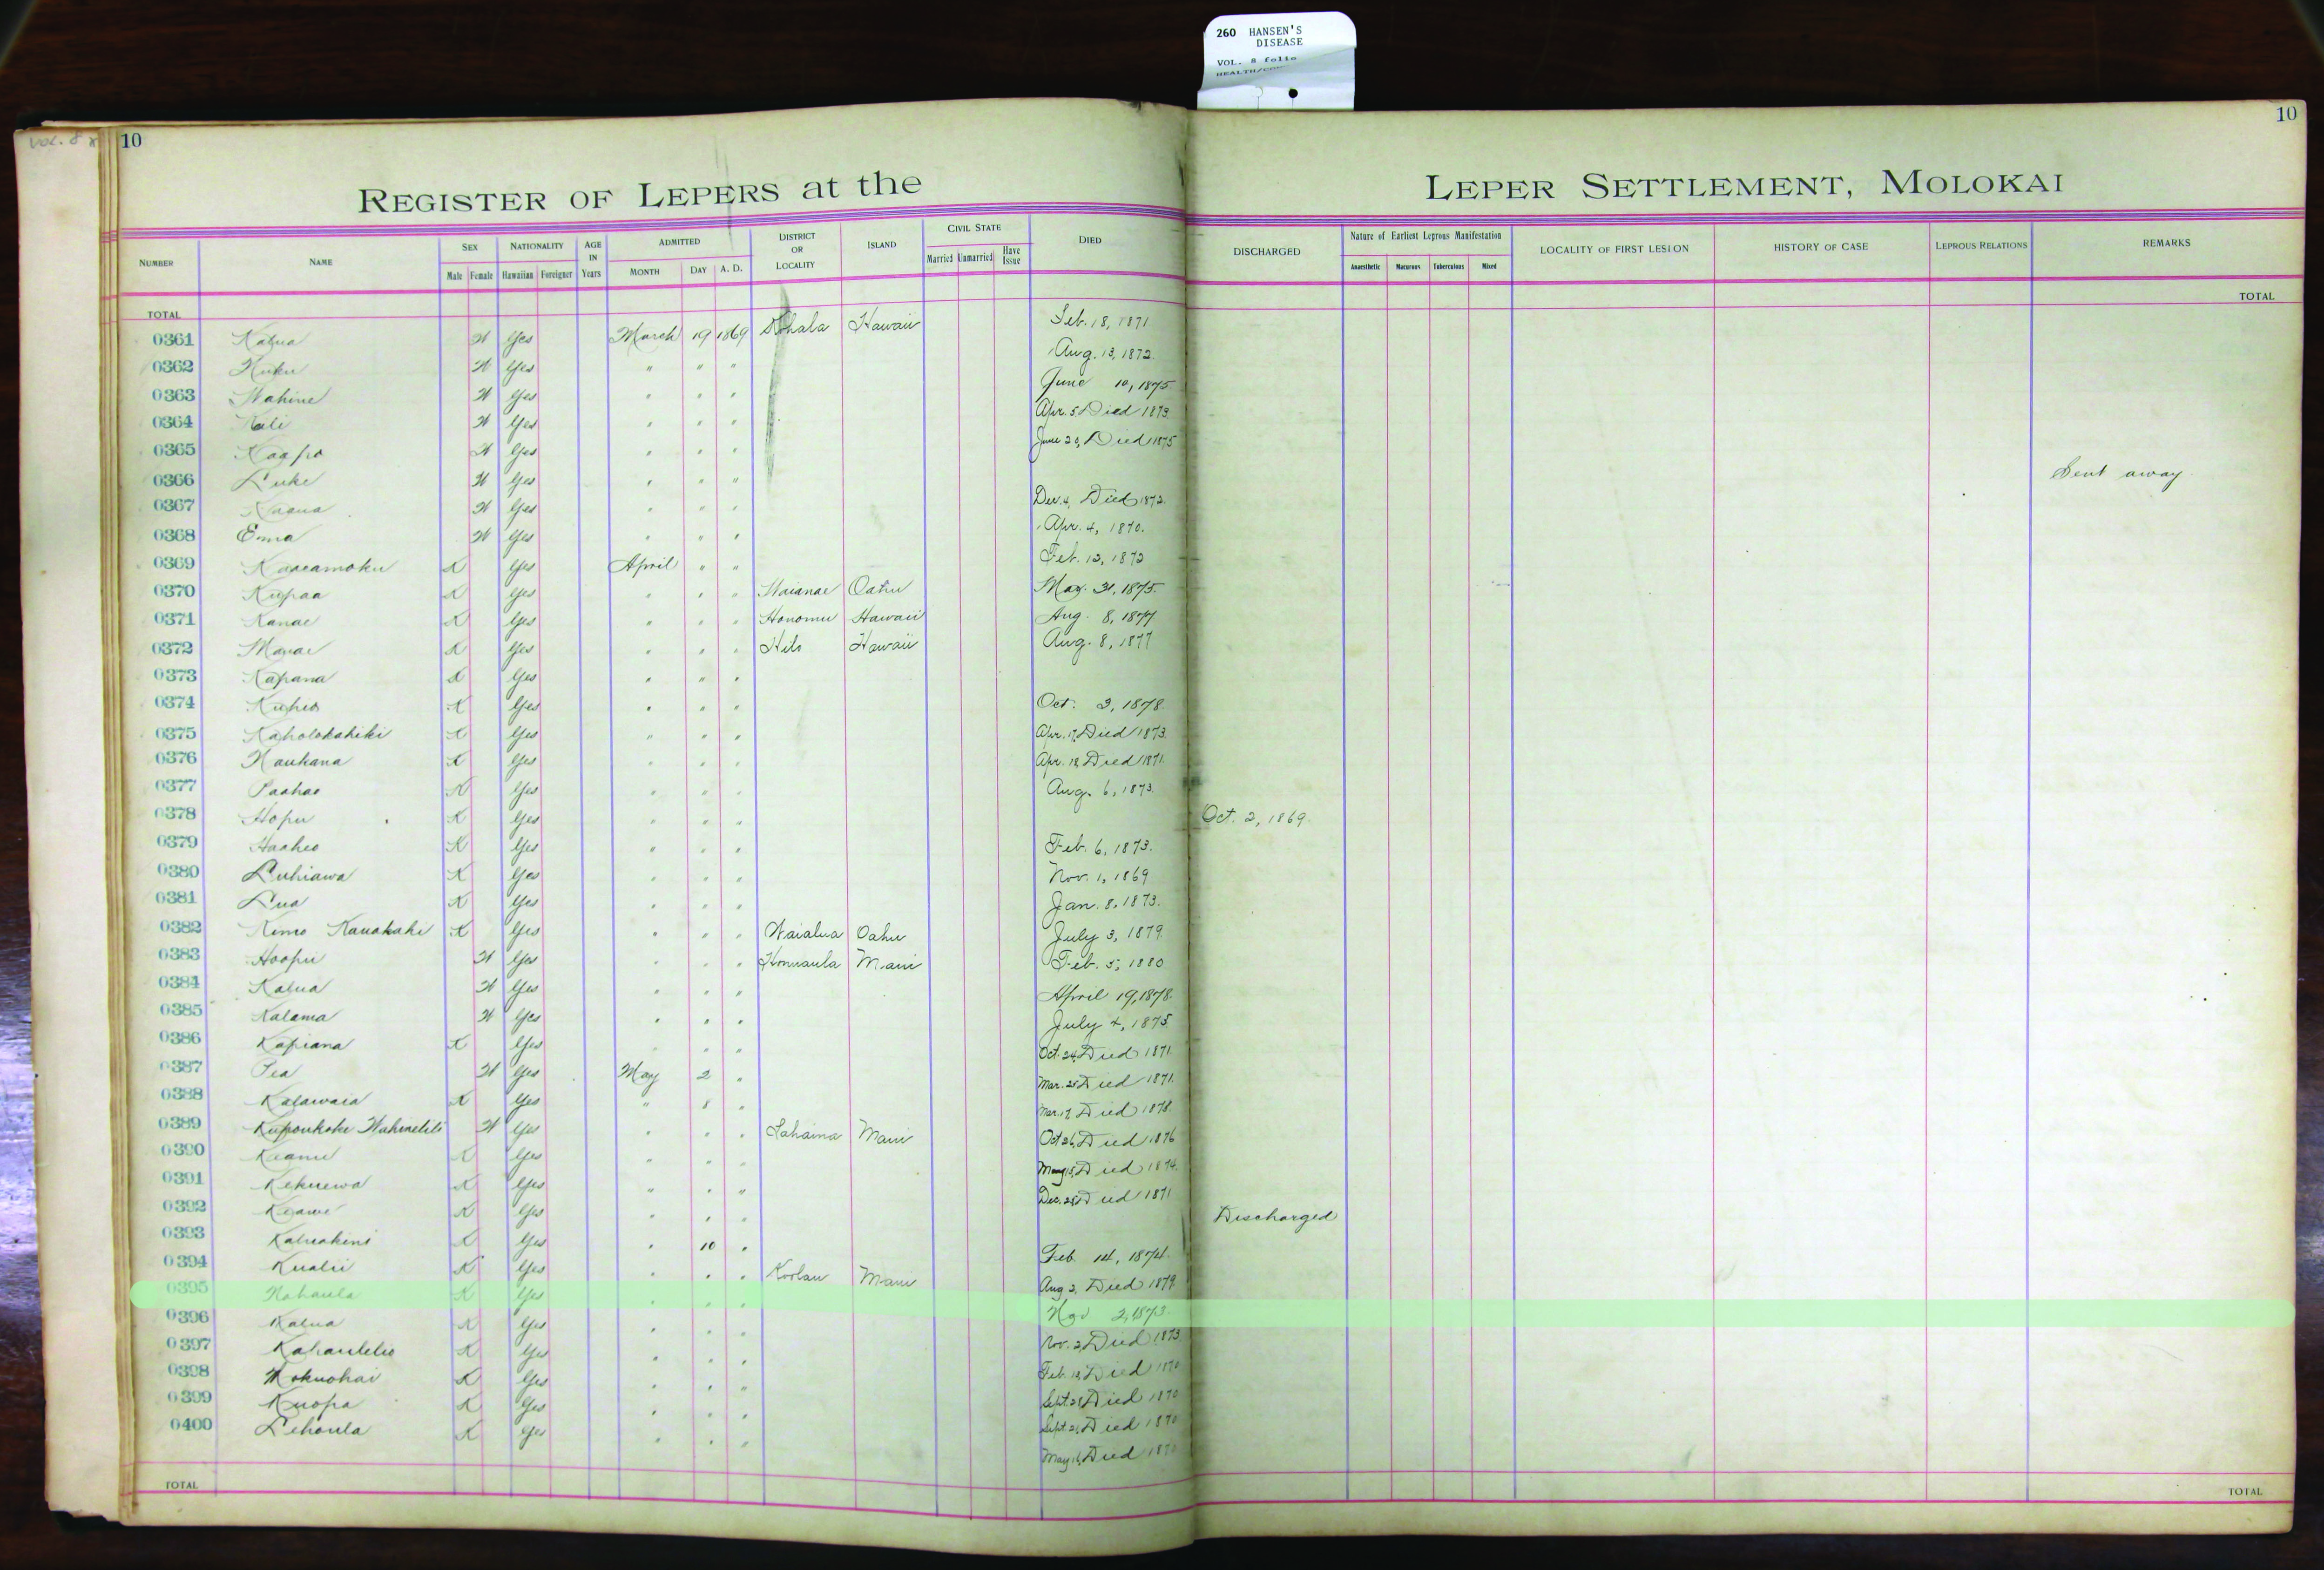 260 HANSEN'S
DISEASE
VOL. 8 folio
VOL. 8
10
10
REGISTER OF LEPERS at the LEPER SETTLEMENT, MOLOKAI
NUMBER NAME SEX Male Female NATIONALITY Hawaiian Foreigner AGE IN Years ADMITTED MONTH DAY A. D. DISTRICT OR LOCALITY ISLAND CIVIL STATE Married Unmarried Have Issue DIED DISCHARGED Nature of Earliest Leprous Manifestation Anaesthetic Macurous Tuberculous Mixed LOCALITY OF FIRST LESION HISTORY OF CASE LEPROUS RELATIONS REMARKS
TOTAL TOTAL
0361 Kalua W Yes March 19 1869 Kohala Hawaii Feb. 18, 1871
0362 Kuku W Yes " " " Aug. 13, 1872.
0363 Wahine W Yes " " " June 10, 1875
0364 Kali W Yes " " " Apr. 5 Died 1873.
0365 Kaapo W Yes " " " June 20, Died 1875
0366 Luke W Yes " " " Sent away
0367 W Yes " " " Dec. 4, Died 1872.
0368 Emma W Yes " " " Apr. 4, 1870.
0369 Kaaeamoku K Yes April " " Feb. 12, 1872
0370 Kupaa K Yes " " " Waianae Oahu May. 31, 1875.
0371 Kanae K Yes " " " Honomu Hawaii Aug. 8, 1877
0372 K Yes " " " Hilo Hawaii Aug. 8, 1877
0373 Kapana K Yes " " "
0374 Kuheo K Yes " " " Oct. 3, 1878.
0375 Kaholokahiki K Yes " " " Apr. 17, Died 1873.
0376 Naukana K Yes " " " Apr. 18, Died 1871.
0377 Paahao K Yes " " " Aug. 6, 1873.
0378 Hopu K Yes " " " Oct. 2, 1869.
0379 Haaheo K Yes " " " Feb. 6, 1873.
0380 Luhiawa K Yes " " " Nov. 1, 1869
0381 Lua K Yes " " " Jan. 8, 1873.
0382 Kimo Kauakahi K Yes " " " Waialua Oahu July 3, 1879.
0383 Hoopii W Yes " " " Honuaula Maui Feb. 5, 1880
0384 Kalua W Yes " " " April 19, 1878.
0385 Kalama W Yes " " " July 4, 1875
0386 Kapiana K Yes " " " Oct. 24, Died 1871.
0387 Pea W Yes May 2 " Mar. 25 Died 1871.
0388 Kalawaia K Yes " 8 " Mar. 17, Died 1878.
0389 W Yes " " " Lahaina Maui Oct 26, Died 1876
0390 Keanu K Yes " " " May 15, Died 1874.
0391 Kekuewa K Yes " " " Dec. 28, Died 1871
0392 Keawe K Yes " " " Discharged
0393 Kaluakini K Yes " 10 " Feb. 14, 1874.
0394 Kualii K Yes " " " Koolau Maui Aug 2, Died 1879.
0395 Nahaula K Yes " " " Nov 2, 1873.
0396 Kalua K Yes " " " Nov. 2, Died 1873
0397 K Yes " " " Feb. 18, Died 1870
0398 Mokuohai K Yes " " " Sept. 28 Died 1870
0399 Kuopa K Yes " " " Sept. 21, Died 1870
0400 Lehoula K Yes " " " May 16, Died 1870
TOTAL TOTAL